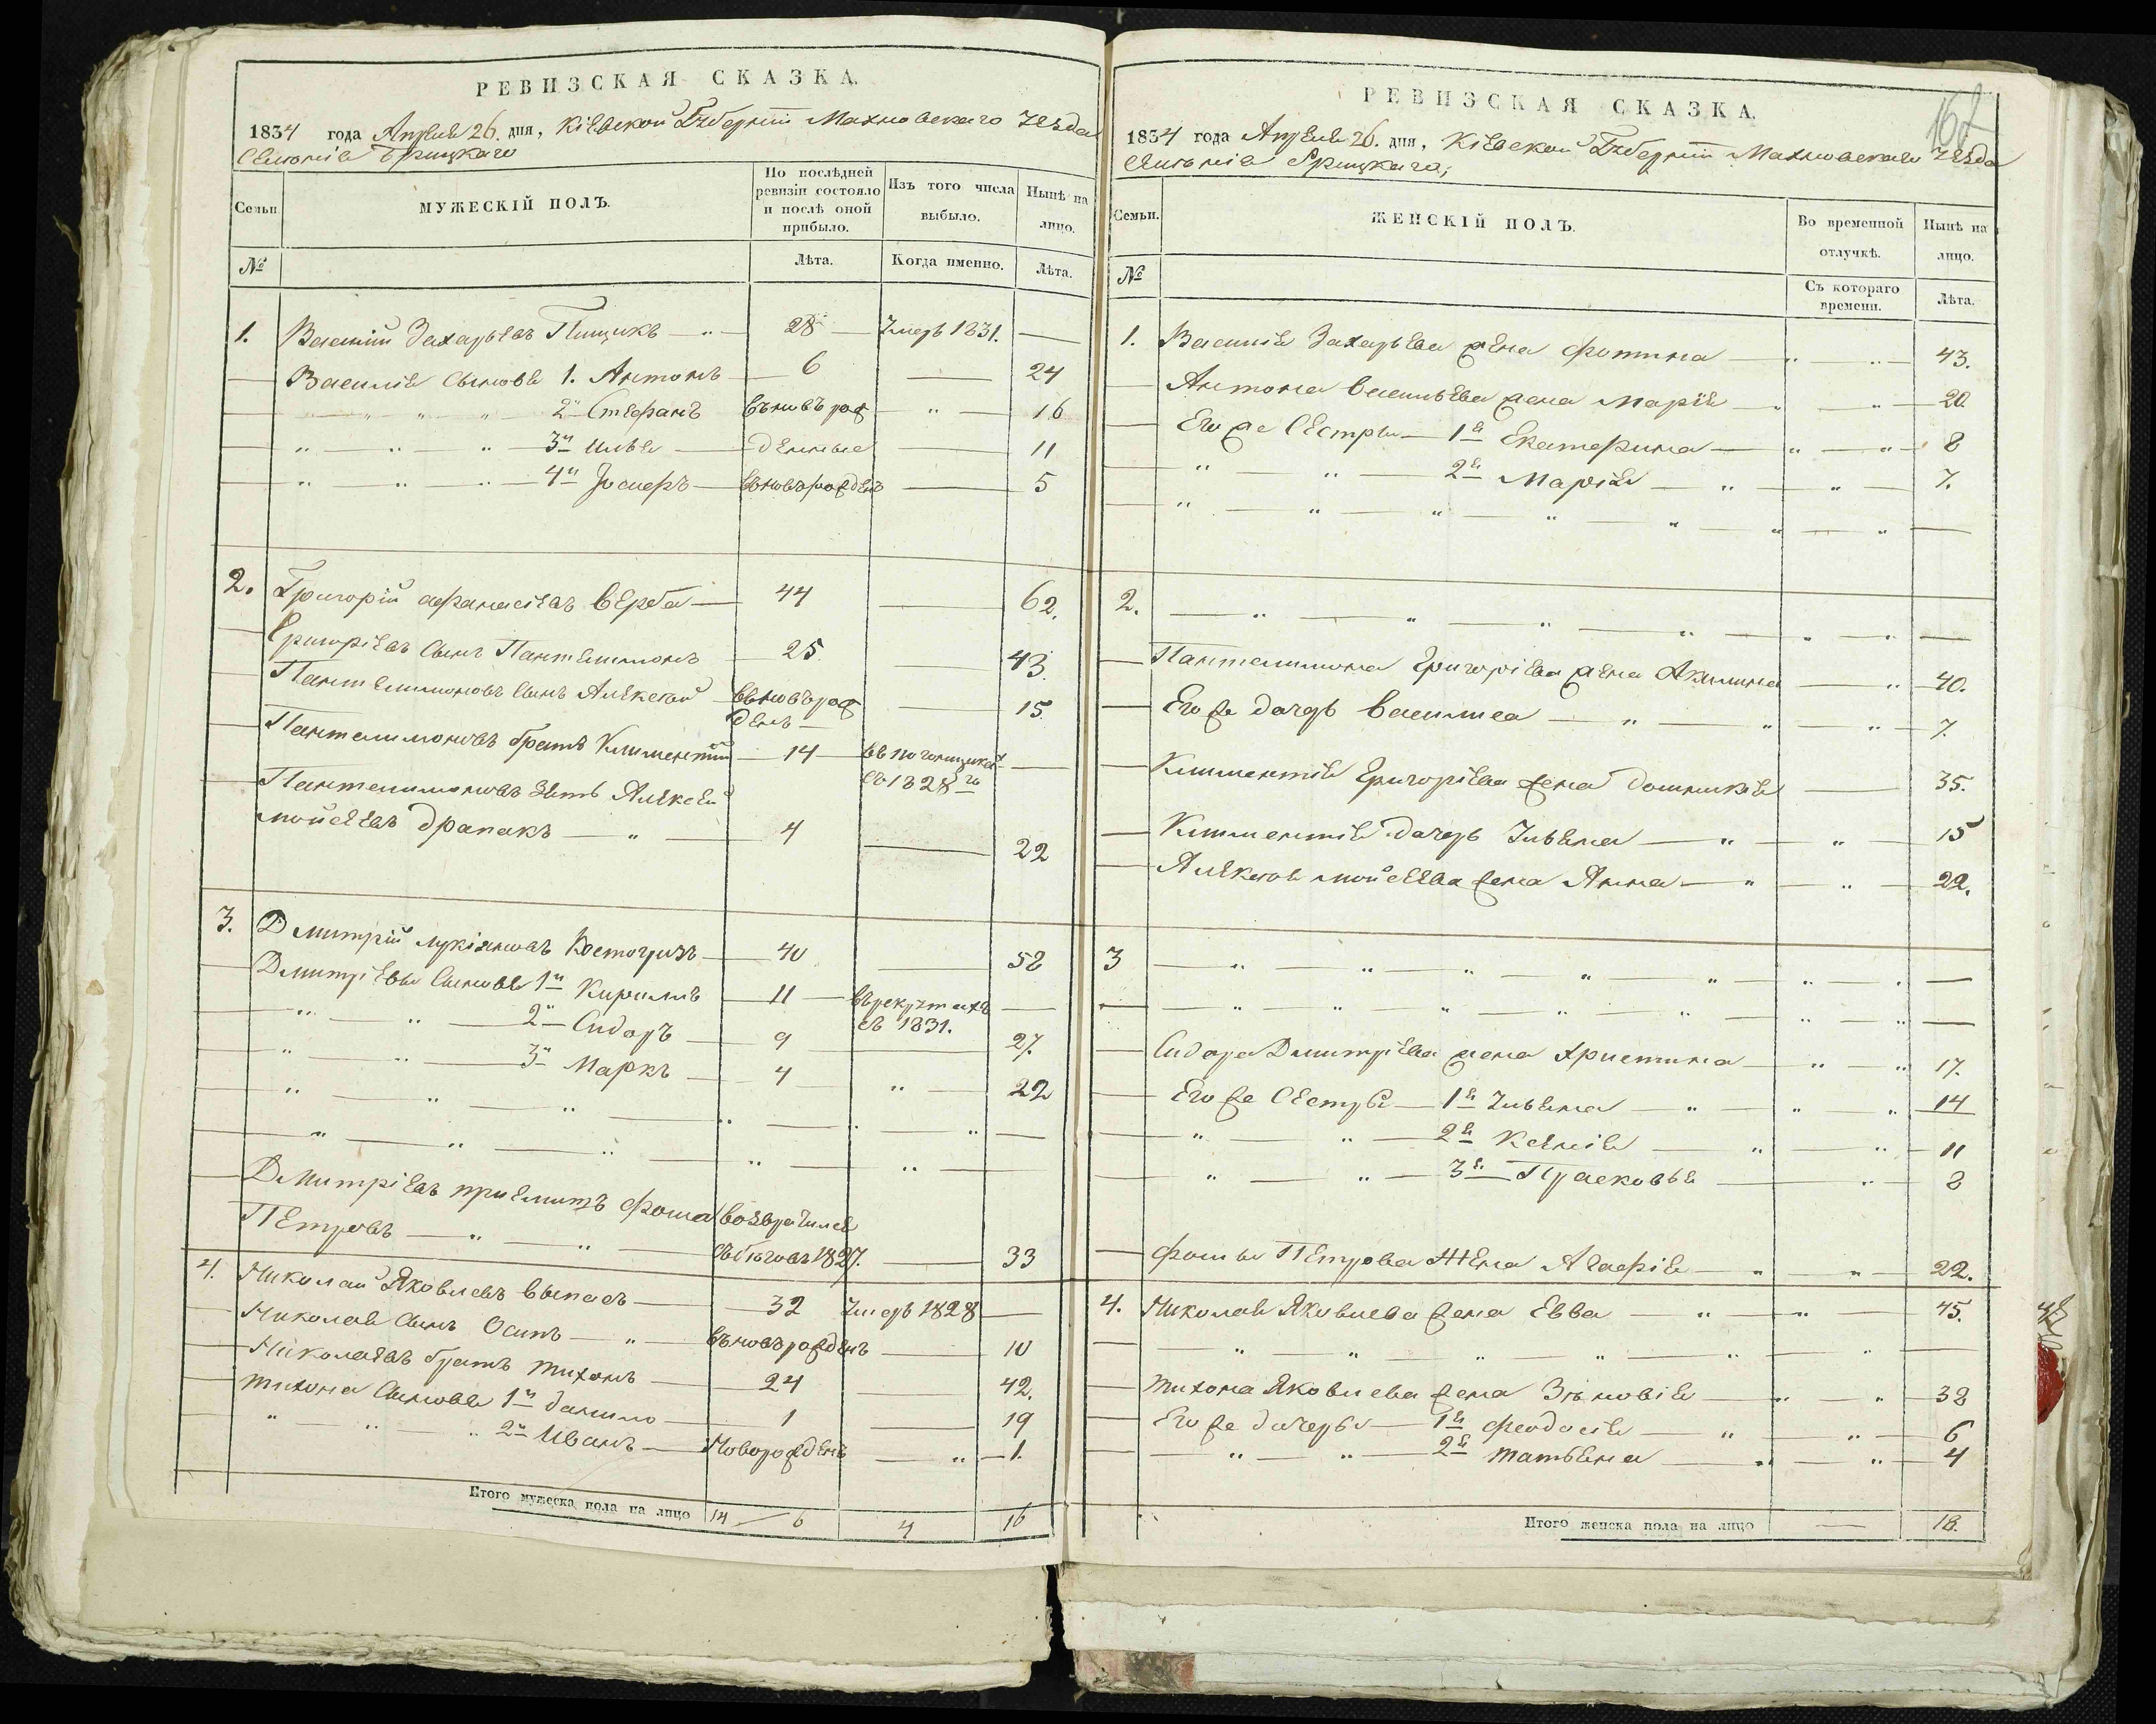 РЕВИЗСКАЯ СКАЗКА.
1834 года Апреля 26. дня, Кіевской Губерніи Махновскаго Уезда
Селенія Брицкаго
Семьи
МУЖЕСКІЙ ПОЛЪ.
По послѣдней ревизіи состояло и послѣ оной прибыло.
Изъ того числа выбыло.
Нынѣ на лицо.
№
Лѣта.
Когда именно.
Лѣта.
1. Василій Захарьевъ Пищикъ 28 Умеръ 1831.
Василія Сыновья 1. Антонъ 6 24
2й Стефанъ вѣновърож 16
3й Илья денные 11
4й Іосифъ вѣноворожденъ 5
2. Григорій Афанасіевъ Верба 44 62.
Григоріевъ Сынъ Пантелимонъ 25 43.
Пантелимоновъ Сынъ Алексей вѣновърож
денъ 15.
Пантелимоновъ братъ Климентій 14 въ погонщикахъ
съ 1828го
Пантелимоновъ Зять Алексей
Мойсеевъ Драпакъ 4 22
3. Дмитрій Лукіяновъ Костогризъ 40 58
Дмитріевы Сыновья 1й Кирилъ 11 въ рекрутахъ
съ 1831.
2й Сидоръ 9 27.
3й Маркъ 4 22
Дмитріевъ приемитъ Фома возвратился
Петровъ съ бѣговъ 1827. 33
4. Николай Яковлевъ Выпасъ 32 Умеръ 1828
Николая Сынъ Осипъ вѣноворожденъ 10
Николаевъ братъ Тихонъ 24 42.
Тихона Сыновья 1й Данило 1 19
2й Иванъ Новорожденъ 1.
Итого мужеска пола на лицо 14 6 4 16
РЕВИЗСКАЯ СКАЗКА.
1834 года Апреля 26. дня, Кіевской Губерніи Махновскаго Уезда
Селенія Брицкаго;
Семьи.
ЖЕНСКІЙ ПОЛЪ.
Во временной отлучкѣ.
Нынѣ на лицо.
№
Съ котораго времени.
Лѣта.
1. Василія Захарьева жена Фотина 43.
Антона Васильева жена Марія 20
Его же Сестры 1я Екатерина 8
2я Марія 7.
2.
Пантелимона Григоріева жена Акилина 40.
Его же дочерь Василиса 7.
Климентія Григоріева жена Домникія 35.
Климентія дочерь Ульяна 15
Алексея Мойсеева жена Анна 22.
3
Сидора Дмитріева жена Христина 17.
Его же Сестры 1я Ульяна 14
2я Ксенія 11
3я Прасковья 8
Фомы Петрова Жена Агафія 22.
4. Николая Яковлева жена Евва 45.
Тихона Яковлева жена Зѣновія 38
Его же дочеры 1я Феодосія 6
2я Татьяна 4
Итого женска пола на лицо 18.